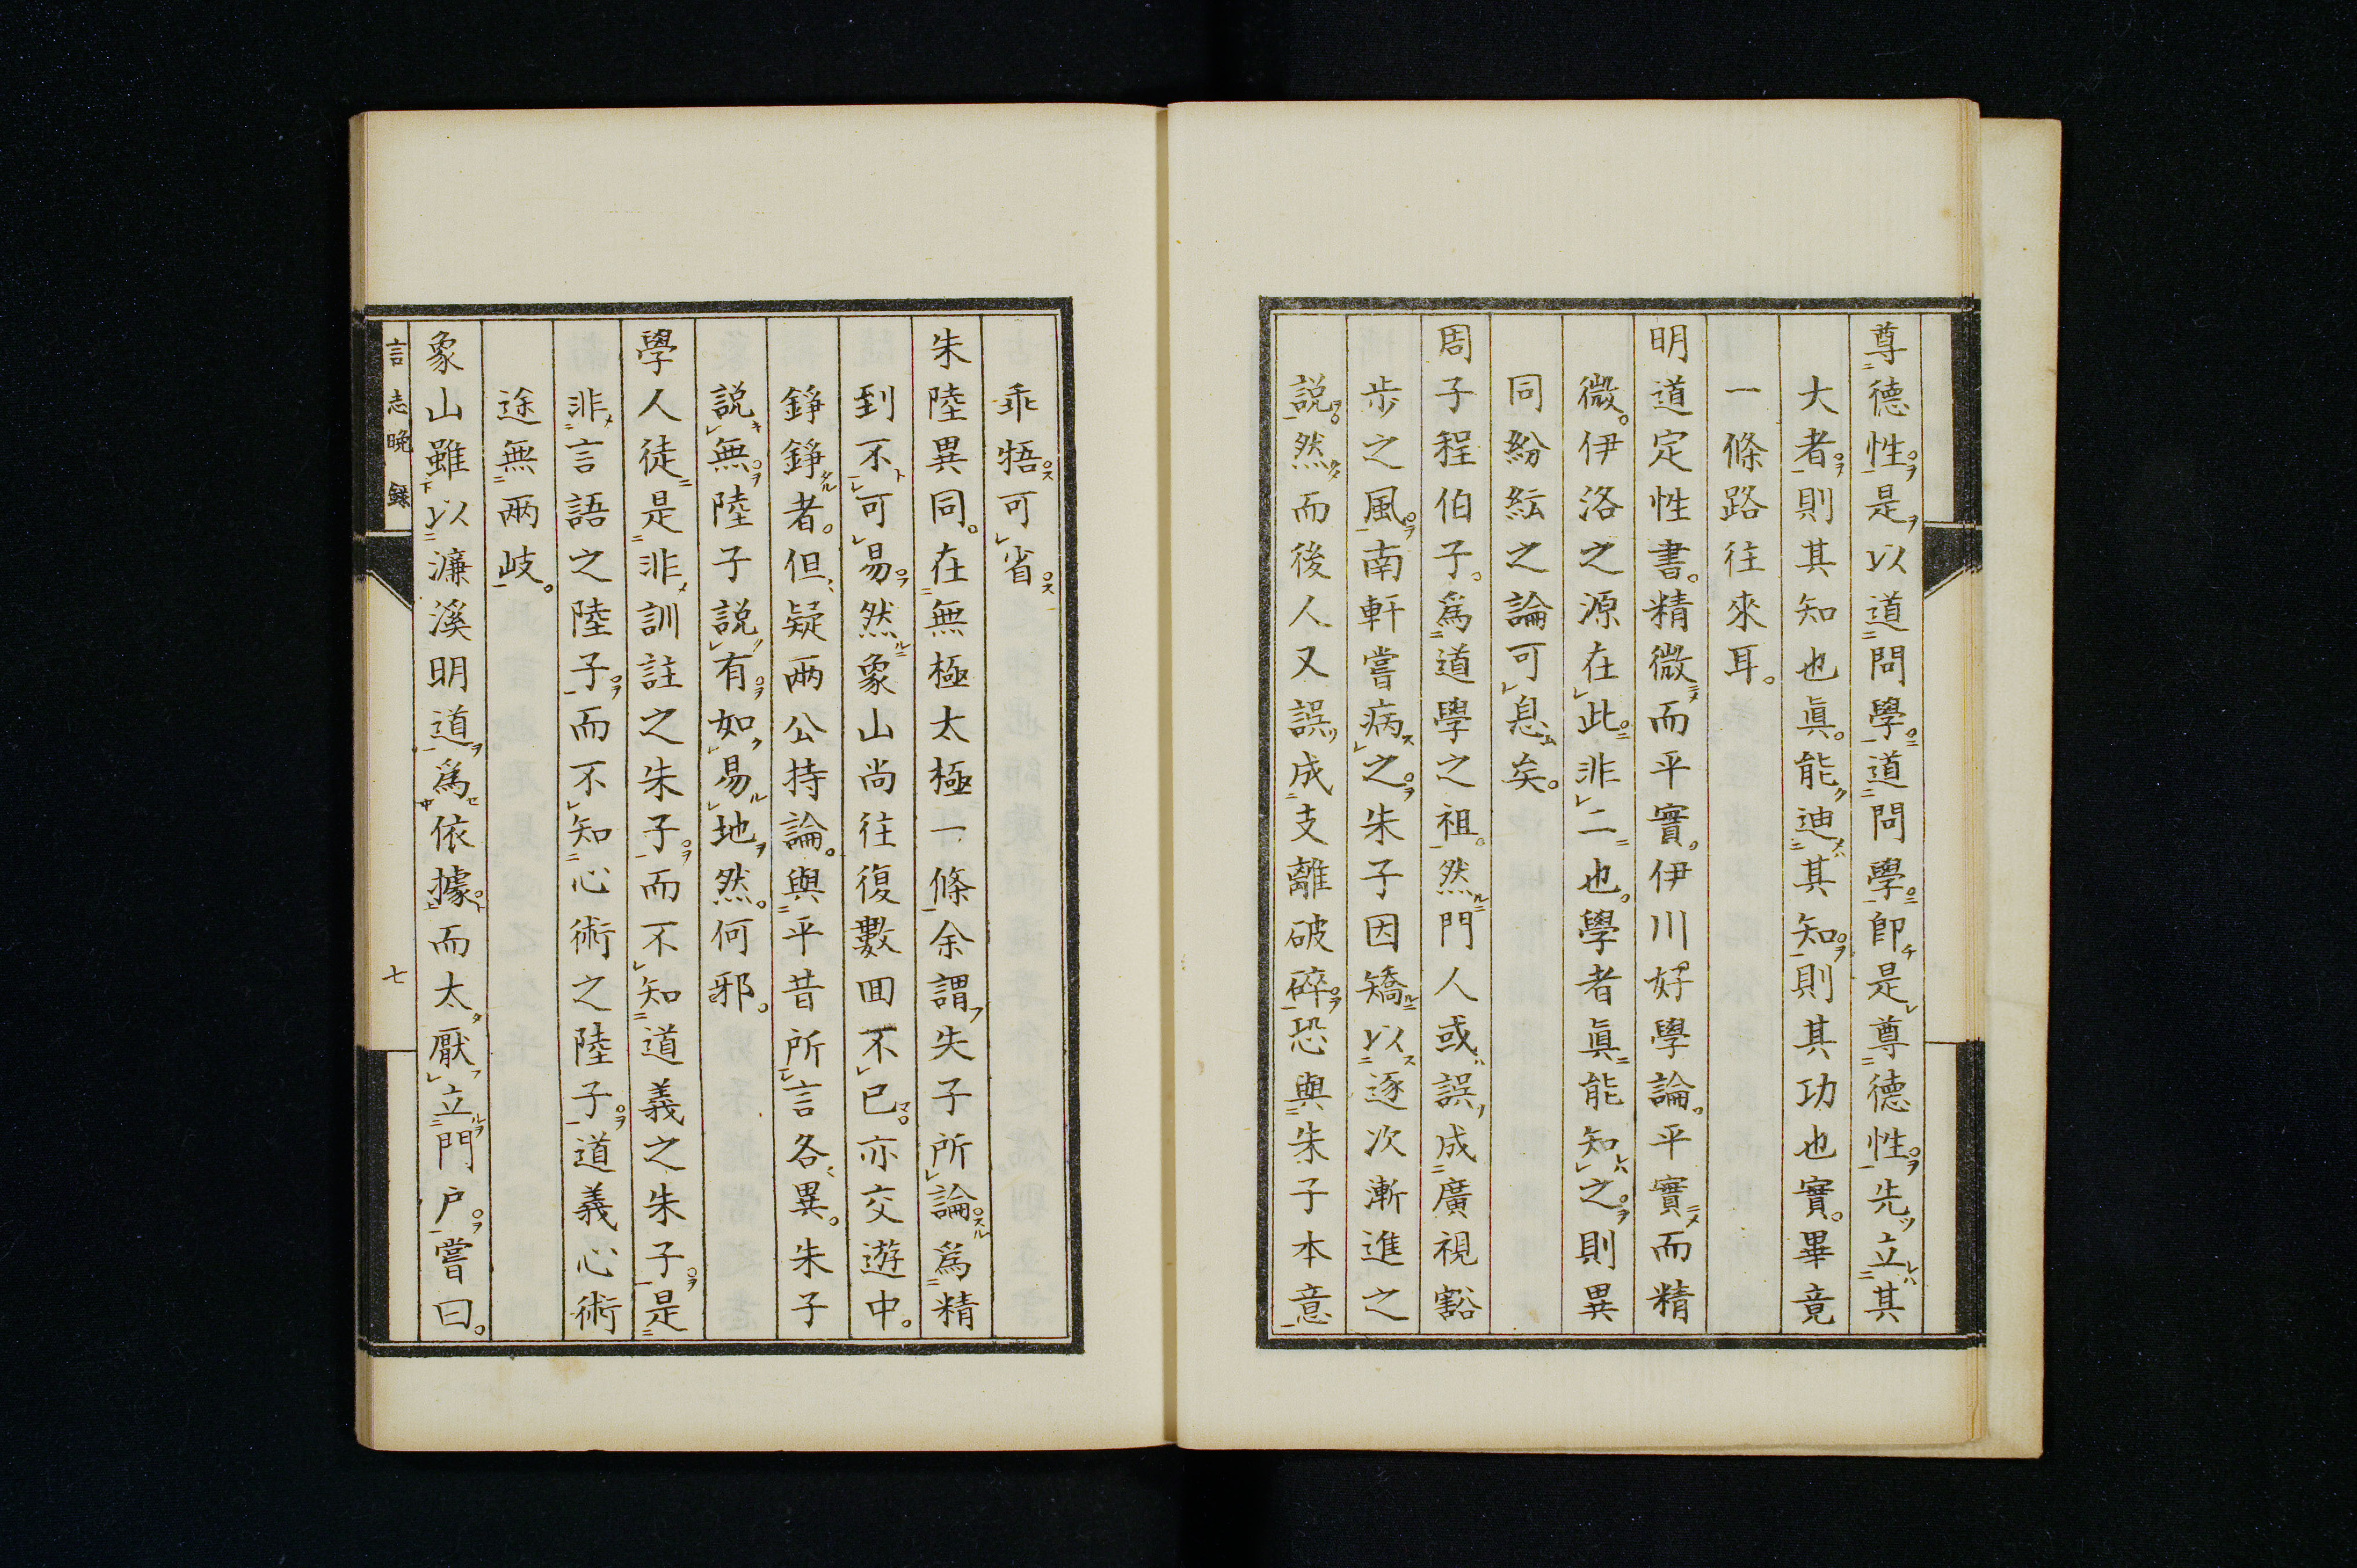 尊德性是以道問學道問學卽是尊德性先立其
大者則其知也眞能迪其知則其功也實畢竟
一條路往來耳
明道定性書精微而平實伊川好學論平實而精
微伊洛之源在此非二也學者眞能知之則異
同紛紜之論可息矣
周子程伯子爲道學之祖然門人或誤成廣視豁
步之風南軒嘗病之朱子因矯以逐次漸進之
説然而後人又誤成支離破碎恐與朱子本意
乖牾可省
朱陸異同在無極太極一條余謂失子所論爲精
到不可易然象山尚往復數回不已亦交遊中
錚錚者但疑兩公持論與平昔所言各異朱子
説無陸子説有如易地然何邪
學人徒是非訓註之朱子而不知道義之朱子是
非言語之陸子而不知心術之陸子道義心術
途無兩岐
象山雖以濂溪明道爲依據而太厭立門户嘗曰
言志晚錄
七